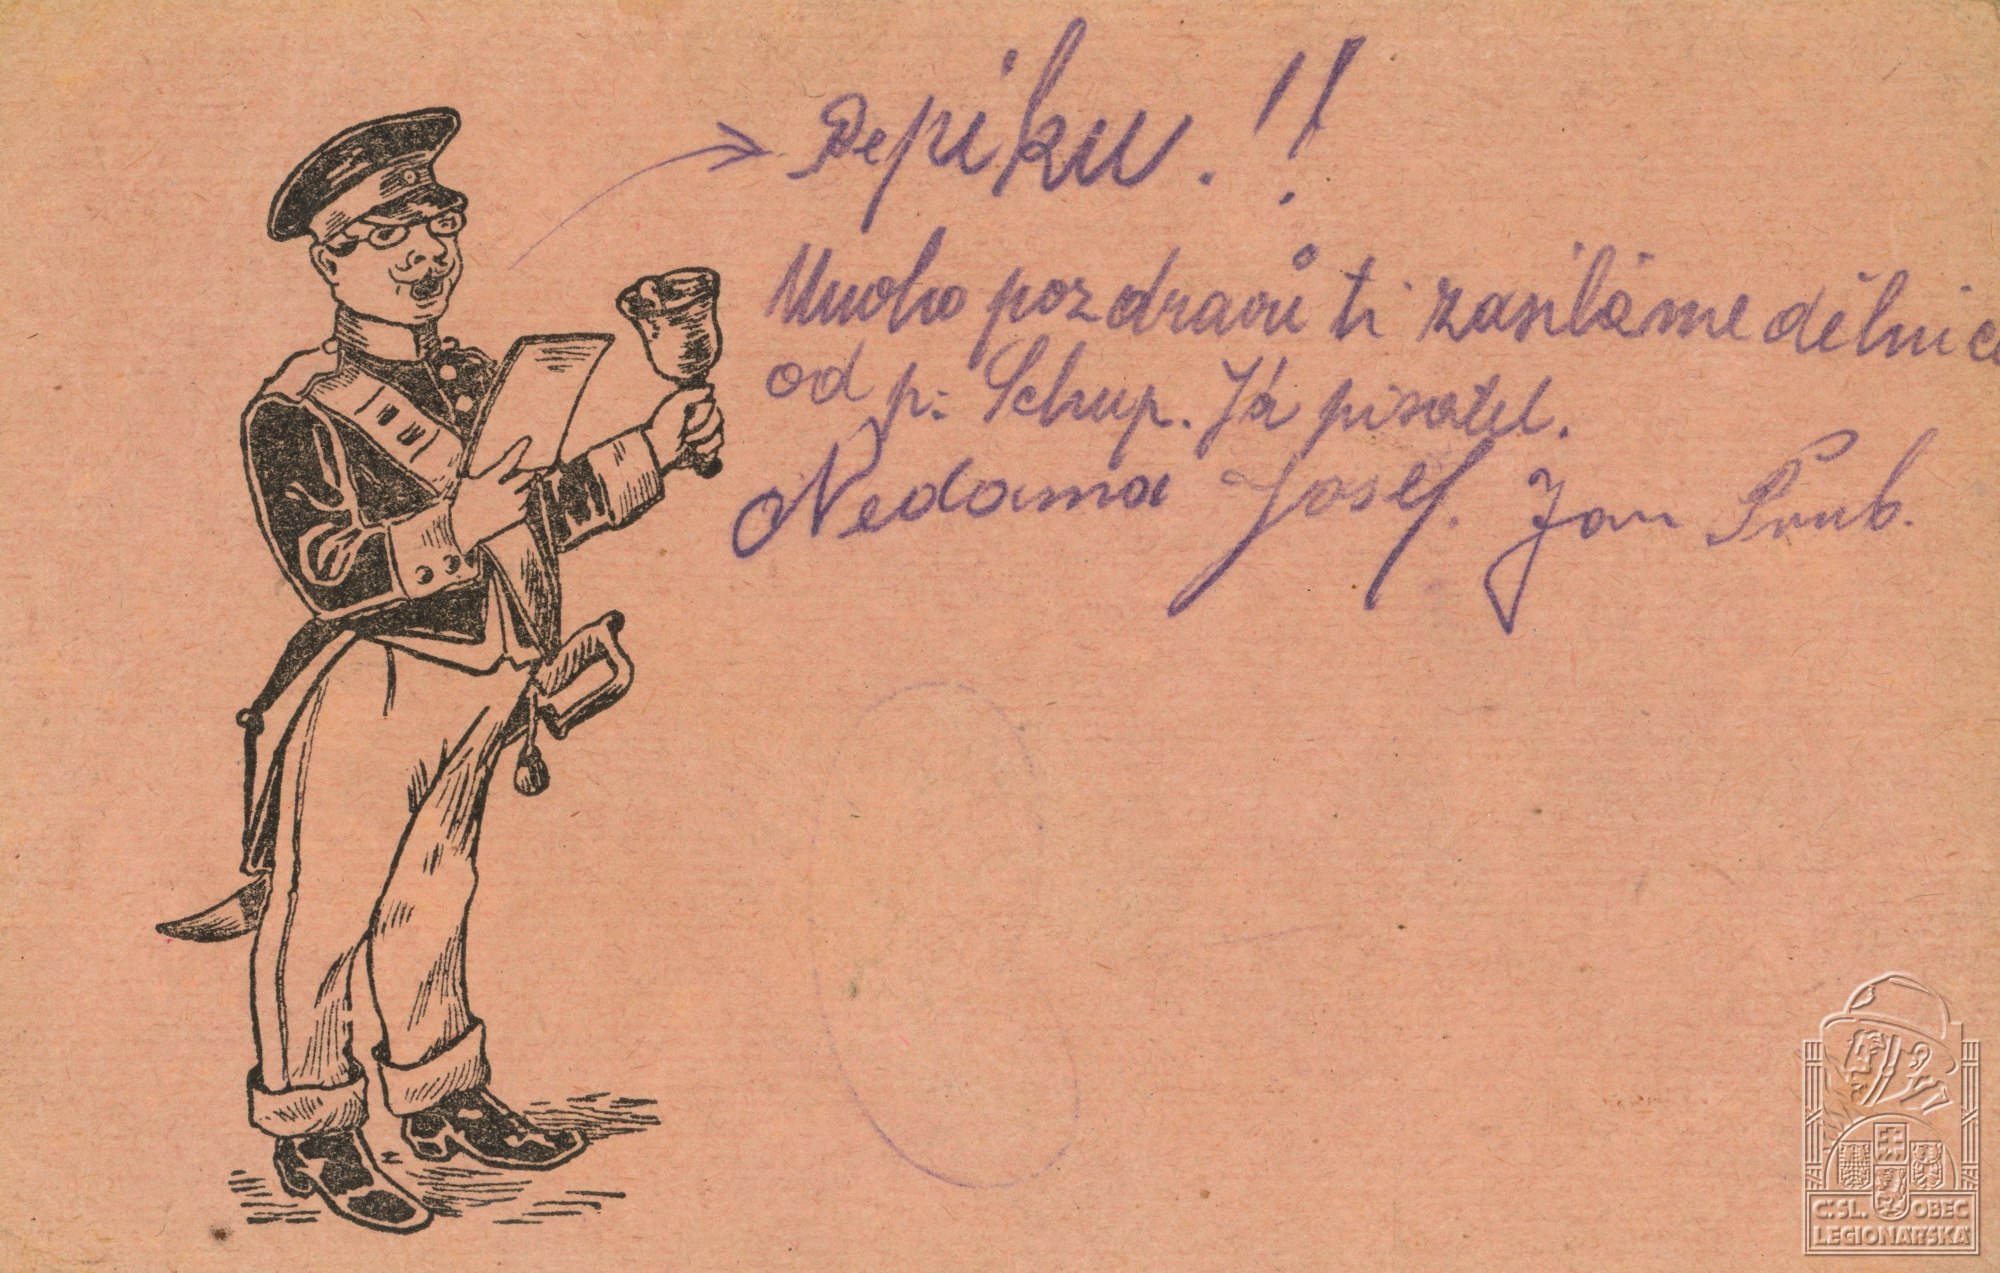 Pepiku.!!
Mnoho pozdravů ti zasiláme dělnice
od p: Schup. Já pisatel.
Nedoma Josef. Jan
Č:SL. OBEC
LEGIONÁŘSKÁ